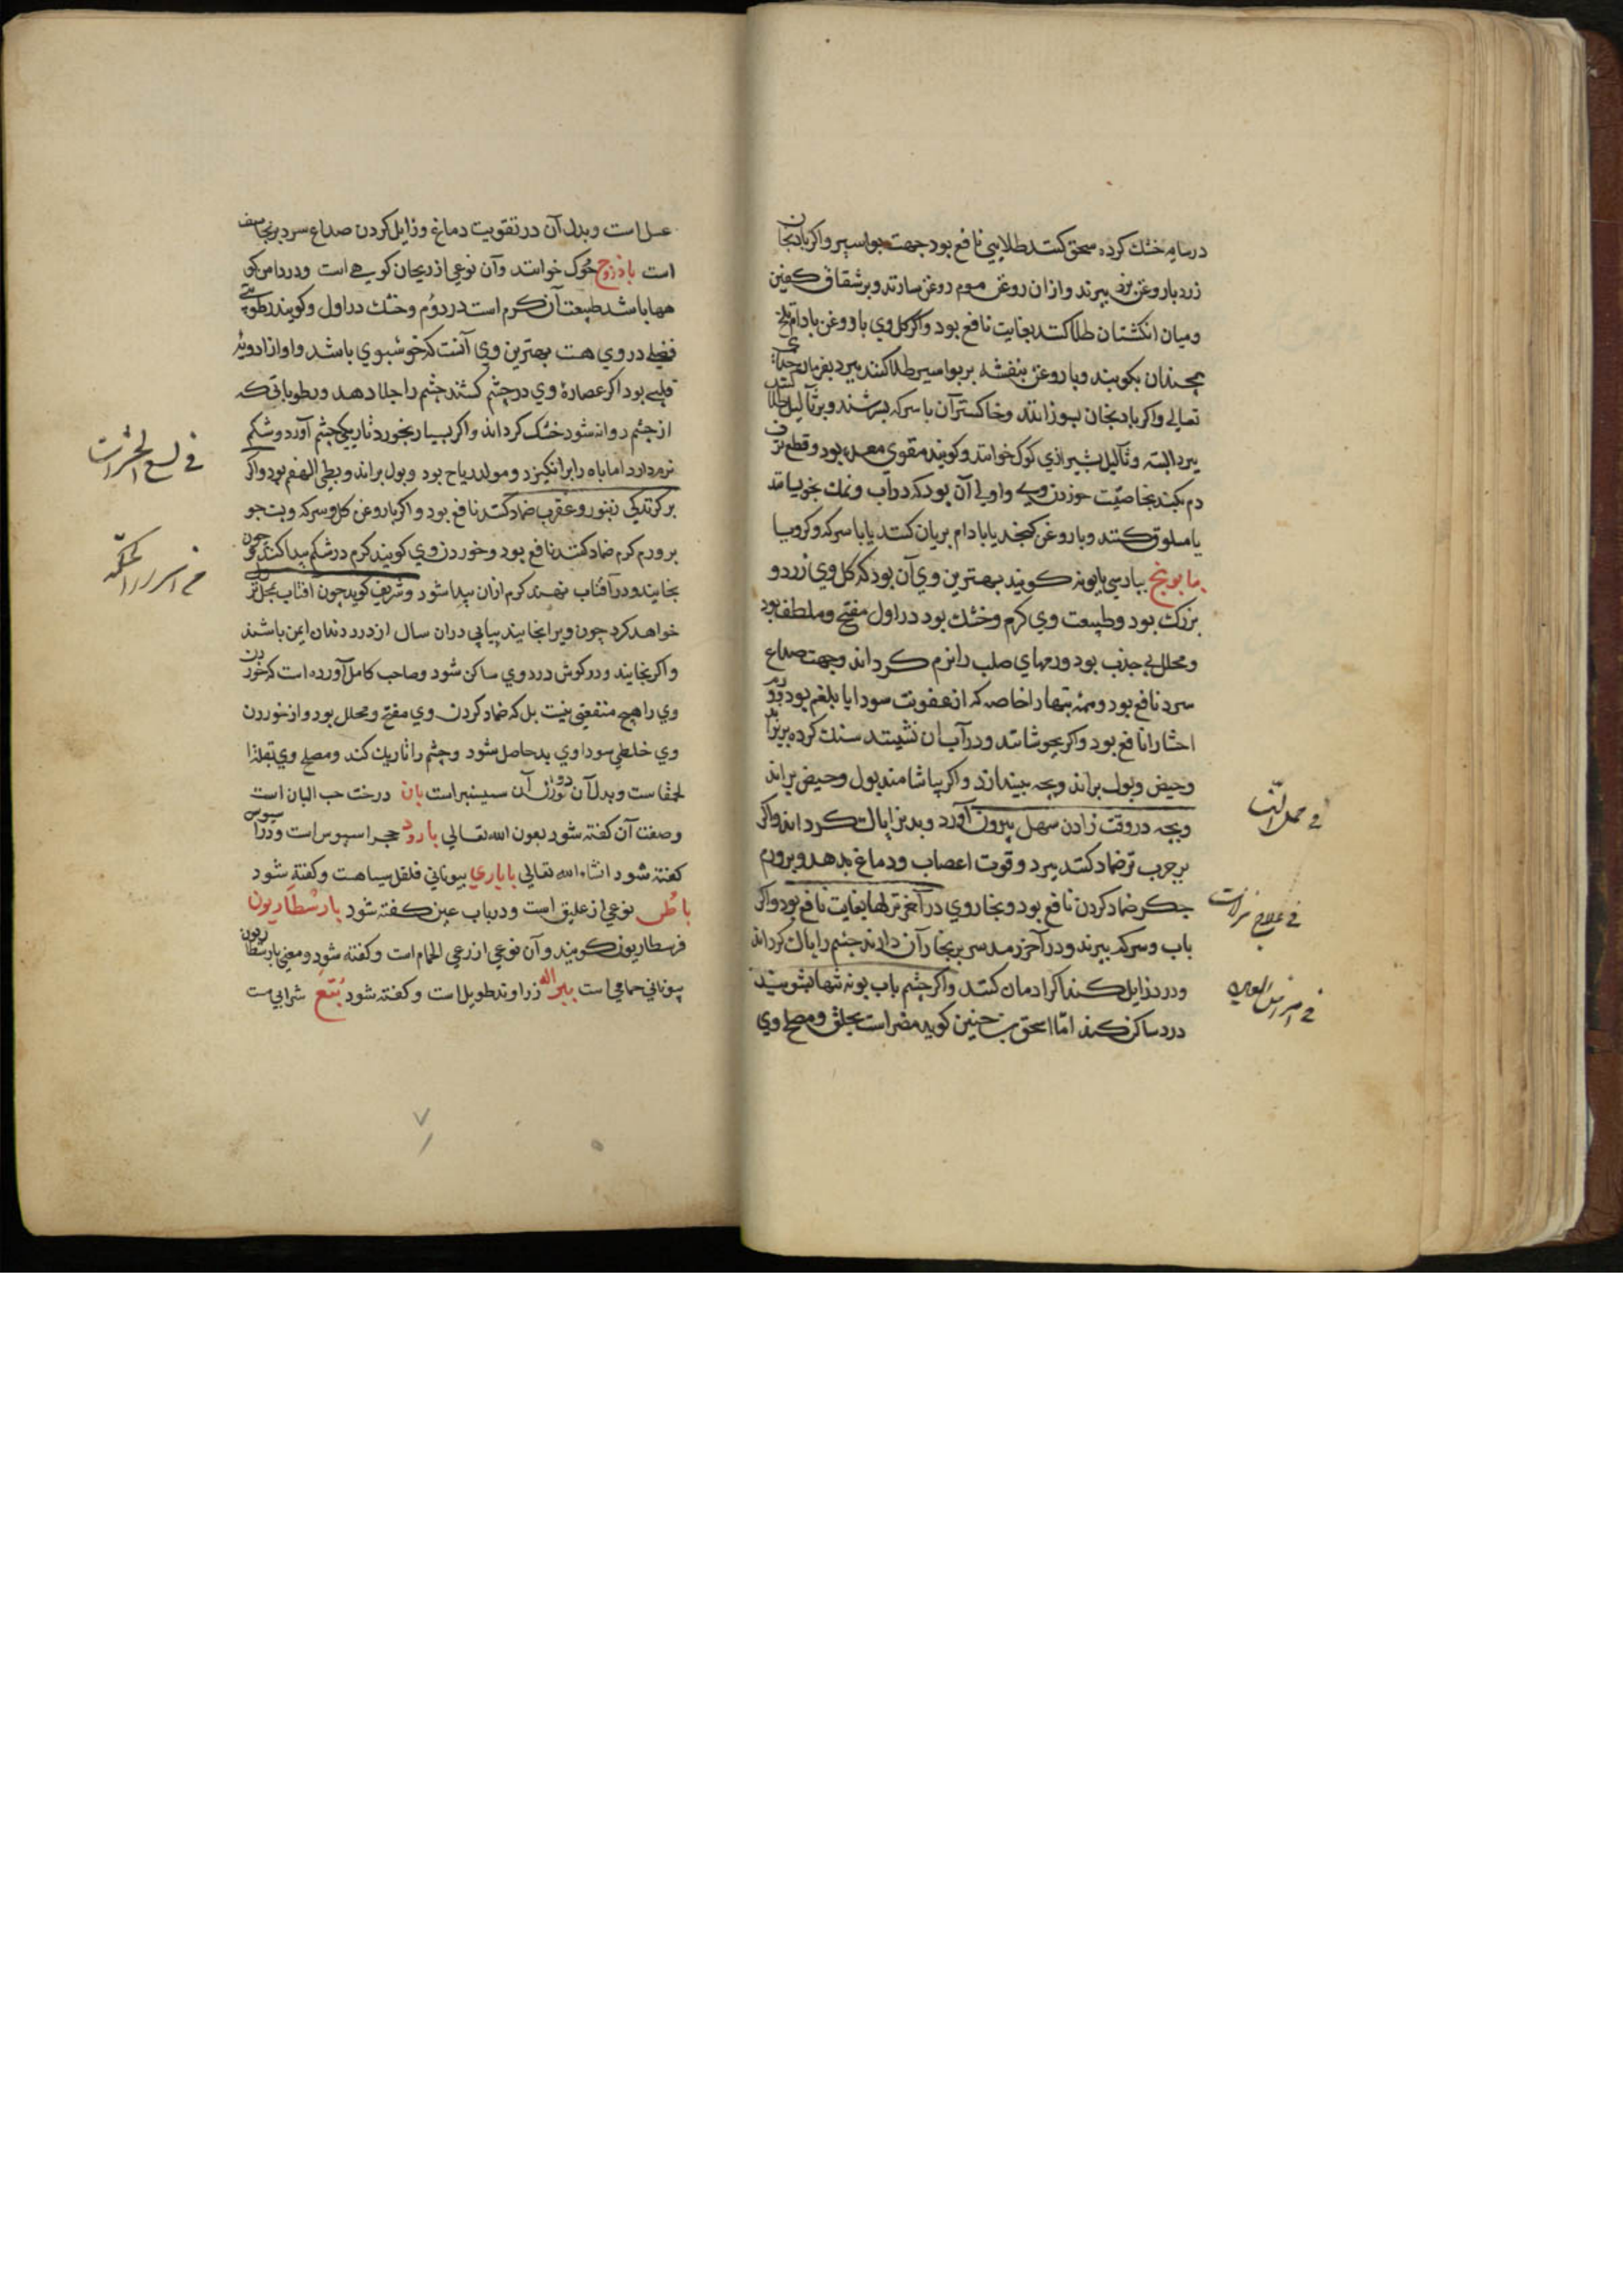 در سایه خشك كرده سحق كنند طلایی نافع بود جهت بواسیر واكر بادنجان
زرد با روغن بزر ببرند وازان روغن موم روغن سازند وبر شقاق كعبین
ومیان انكشتان طلا كنند بغایت نافع بود واكر كل وي با روغن بادام تلخ
همچندان بكویند وبا روغن بنفشه بر بواسیر طلا كنند ببرد بفرمان خدای
تعالی واكر بادنجان بسوزانند وخاكستر آن با سركه بسرشند وبر ثآلیل طلا كنند
ببرد البته وثآلیل بشیرازي كوك خوانند وكویند مقوی معده بود وقطع نزف
دم بكند بخاصیّت خوردن وی واولی آن بود كه در آب ونمك بخیسانند
یا مسلوق كنند وبا روغن كنجد یا بادام بریان كنند یا با سركه وكرویا
بابونج بپارسي بابونه كویند بهترین وي آن بود كه كل وي زرد و
بزرك بود وطبیعت وي كرم وخشك بود در اول مفتح وملطف بود
ومحلل بی جذب بود ورمهاي صلب را نرم كرداند وجهت صداع
سرد نافع بود وهمه تبها را خاصه كه از عفونت سودا یا بلغم بود وورم
احشا را نافع بود واكر بجوشانند ودر آب آن نشینند سنك كرده بریزاند
وحیض وبول براند وبچه بیندازد واكر بیاشامند بول وحیض براند
وبچه در وقت زادن سهل بیرون آورد وبدن را پاك كرداند واكر
بر جرب تر ضماد كنند ببرد وقوت اعصاب ودماغ بدهد وبر ورم
جكر ضماد كردن نافع بود وبخار وي در آخر نزلها بغایت نافع بود واكر
بآب وسركه ببرند ودر آخر رمد سر بر بخار آن دارند چشم را پاك كرداند
ودرد زایل كند اكر ادمان كنند واكر چشم بآب بابونه تنها بشویند
درد ساكن كند امّا اسحق بن حنین كوید مضر است بحلق ومصلح وي
في علاج نزلات
عسل است وبدل آن در تقویت دماغ وزایل كردن صداع سرد برنجاسف
است باذروج حوك خوانند وآن نوعي از ریحان كوهي است ودر دامن كو
هها باشد طبیعت آن كرم است در دوُم وخشك در اول وكویند رطوبتي
فضلي در وي هست بهترین وي آنست كه خوشبوي باشد واو از ادویه
قلبي بود اكر عصارهٔ وي در چشم كشند چشم را جلا دهد ورطوباتی كه
از چشم روانه شود خشك كرداند واكر بسیار بخورد تاریكي چشم آورد وشكم
نرم دارد اما باه را برانكیزد ومولد ریاح بود وبول براند وبطي الهضم بود واكر
بر كزندكي زنبور وعقرب ضماد كنند نافع بود واكر با روغن كل وسركه وپست جو
بر ورم كرم ضماد كنند نافع بود وخوردن وي كویند كرم در شكم پیدا كند وچون
بخایند ودر آفتاب نهند كرم ازان پیدا شود وشریف كوید چون افتاب بحمل نزول
خواهد كرد چون ویرا بخایند پیاپي دران سال از درد دندان ایمن باشند
واكر بخایند ودر كوش درد وي ساكن شود وصاحب كامل آورده است كه خوردن
وي را هیچ منفعتي نیست بل كه ضماد كردن وي مفتح ومحلل بود واز خوردن
وي خلطي سوداوي بد حاصل شود وچشم را تاریك كند ومصلح وي بقله
الحمقاست وبدل آن دو وزن آن سیسنبر است بان درخت حب البان است
وصفت آن كفته شود بعون الله تعالی بارود حجر اسیوس است ودر اسیوس
كفته شود انشاء الله تعالی باباري بیوناني فلفل سیاهست وكفته شود
باطس نوعي از علیق است ودر باب عین كفته شود بارسطاریون
فرسطاریون كویند وآن نوعي از رعي الحمام است وكفته شود ومعني بارسطاریون
بیوناني حمامي است ببراله زراوند طویل است وكفته شود بتع شرابي ست
في لسع الحشرات
۷